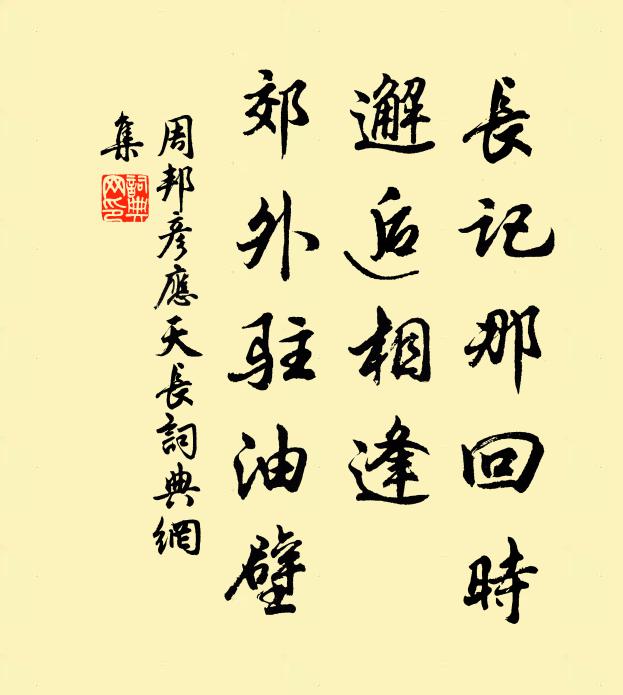 長記那回時
邂逅相逢
郊外駐油壁
周邦彥應天長詞典網
集
詞典
网印